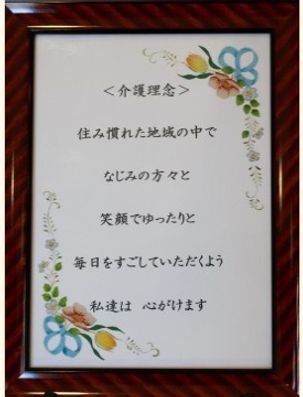 ＜介護理念＞
住み慣れた地域の中で
なじみの方々と
笑顔でゆったりと
毎日をすごしていただくよう
私達は 心がけます